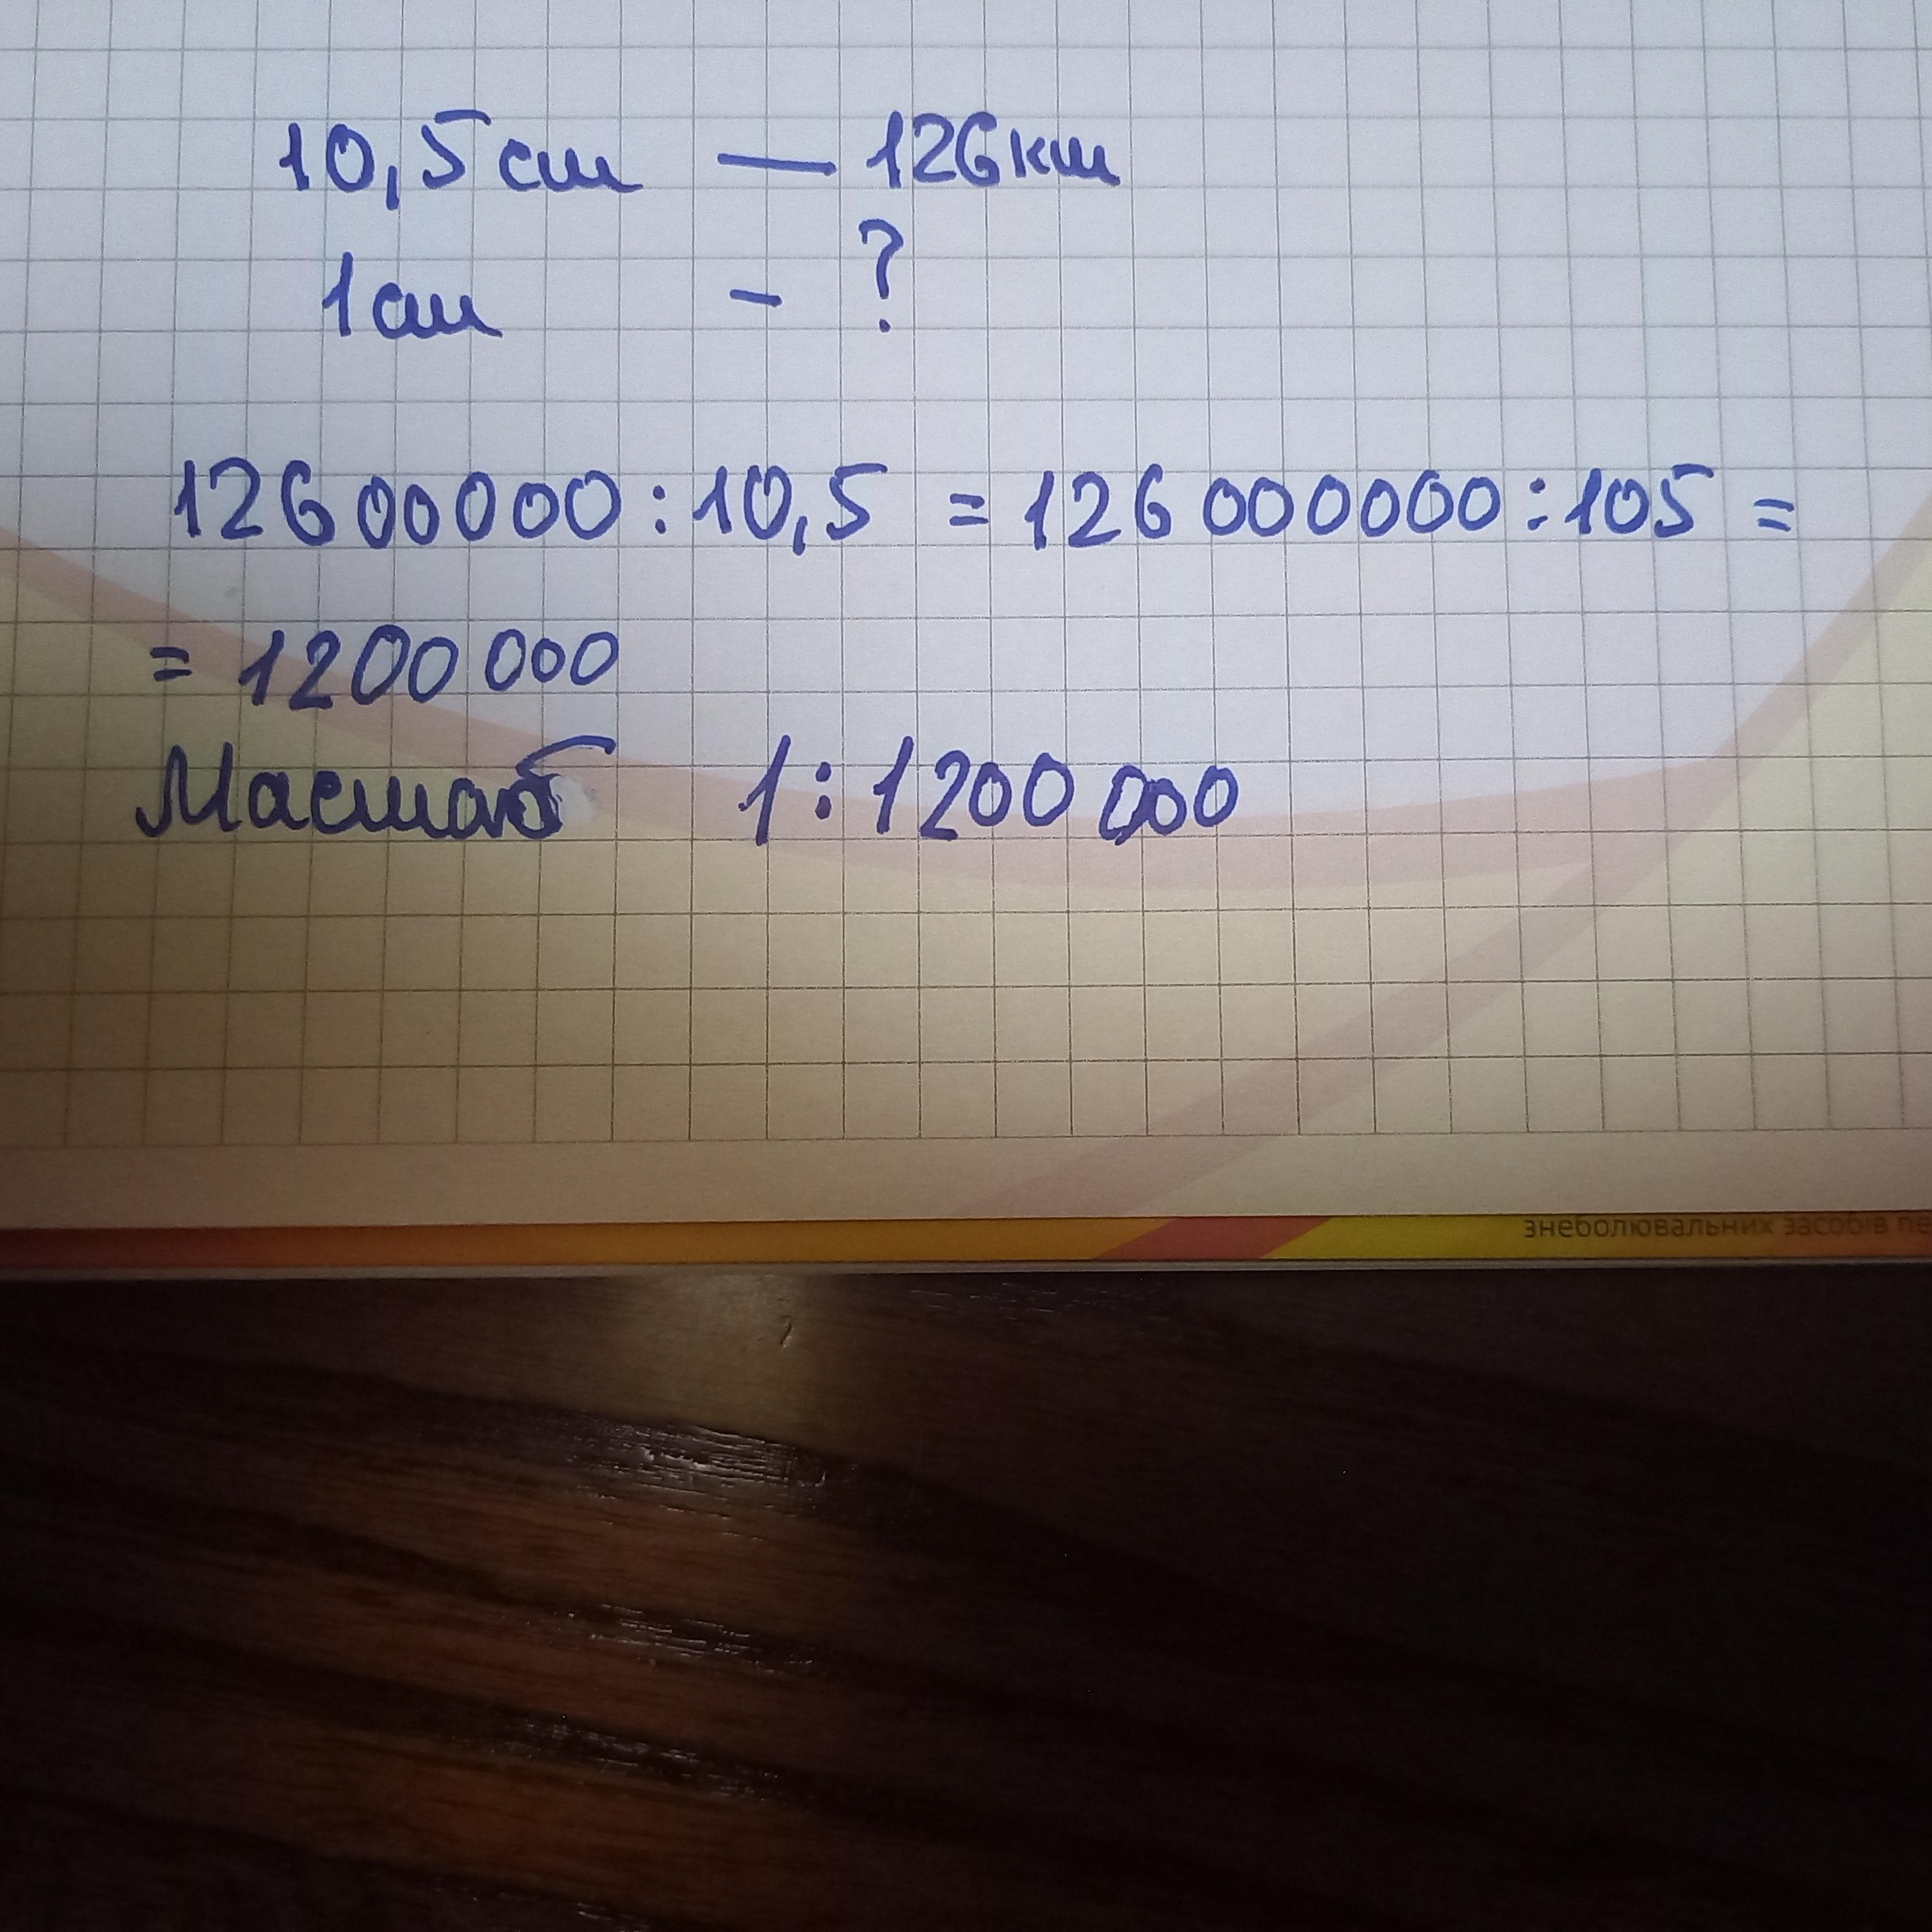 10,5 см — 126 км
1 см - ?
12600000 : 10,5 = 126 000000 : 105 =
= 1200 000
Масштаб 1 : 1200 000
знеболювальних засобів пе